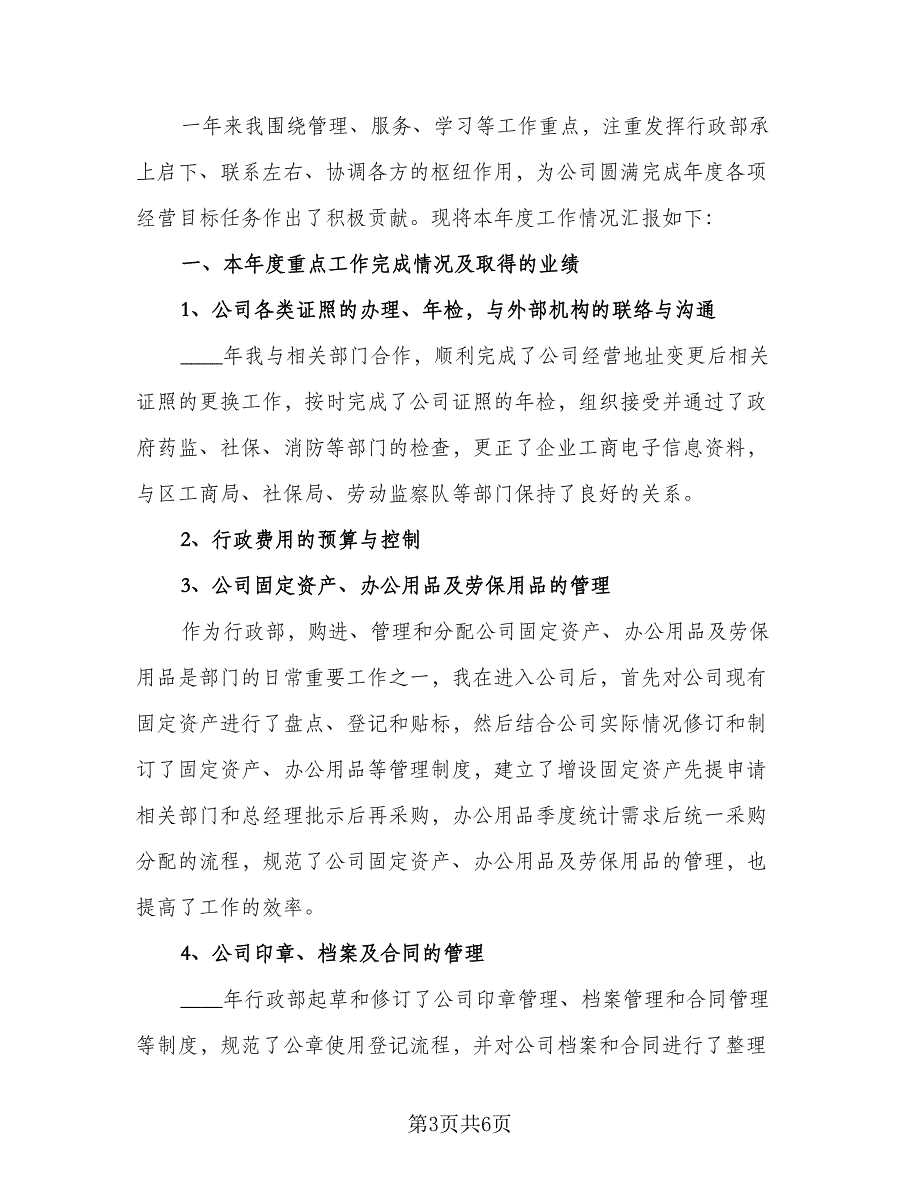 一年来我围绕管理、服务、学习等工作重点，注重发挥行政部承
上启下、联系左右、协调各方的枢纽作用，为公司圆满完成年度各项
经营目标任务作出了积极贡献。现将本年度工作情况汇报如下：
一、本年度重点工作完成情况及取得的业绩
1、公司各类证照的办理、年检，与外部机构的联络与沟通
____年我与相关部门合作，顺利完成了公司经营地址变更后相关
证照的更换工作，按时完成了公司证照的年检，组织接受并通过了政
府药监、社保、消防等部门的检查，更正了企业工商电子信息资料，
与区工商局、社保局、劳动监察队等部门保持了良好的关系。
2、行政费用的预算与控制
3、公司固定资产、办公用品及劳保用品的管理
作为行政部，购进、管理和分配公司固定资产、办公用品及劳保
用品是部门的日常重要工作之一，我在进入公司后，首先对公司现有
固定资产进行了盘点、登记和贴标，然后结合公司实际情况修订和制
订了固定资产、办公用品等管理制度，建立了增设固定资产先提申请
相关部门和总经理批示后再采购，办公用品季度统计需求后统一采购
分配的流程，规范了公司固定资产、办公用品及劳保用品的管理，也
提高了工作的效率。
4、公司印章、档案及合同的管理
____年行政部起草和修订了公司印章管理、档案管理和合同管理
等制度，规范了公章使用登记流程，并对公司档案和合同进行了整理
第3页共6页